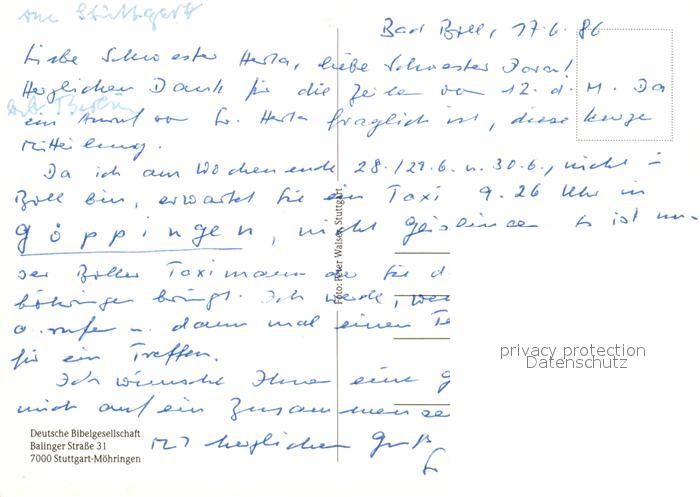 aus Stuttgart
Bad Boll, 17.6.86
Liebe Schwester Herta, liebe Schwester Dora!
Herzlichen Dank für die Zeilen vom 12. d. M. Da
ein Anruf von Sr. Herta fraglich ist, diese kurze
Mitteilung.
Da ich am Wochenende 28./29.6. u. 30.6., nicht in
Boll bin, erwartet Sie ein Taxi 9.26 Uhr in
Göppingen, nicht Geislingen. Es ist un-
ser Boller Taximann der Sie d
böhringen bringt. Ich werde, we
a. rufen u. dann mal einen Te
für ein Treffen.
Ich wünsche Ihnen eine g
mich auf ein Zusammense
Mit herzlichen Gruß
Foto: Peter Walser, Stuttgart
privacy protection
Datenschutz
Deutsche Bibelgesellschaft
Balinger Straße 31
7000 Stuttgart-Möhringen